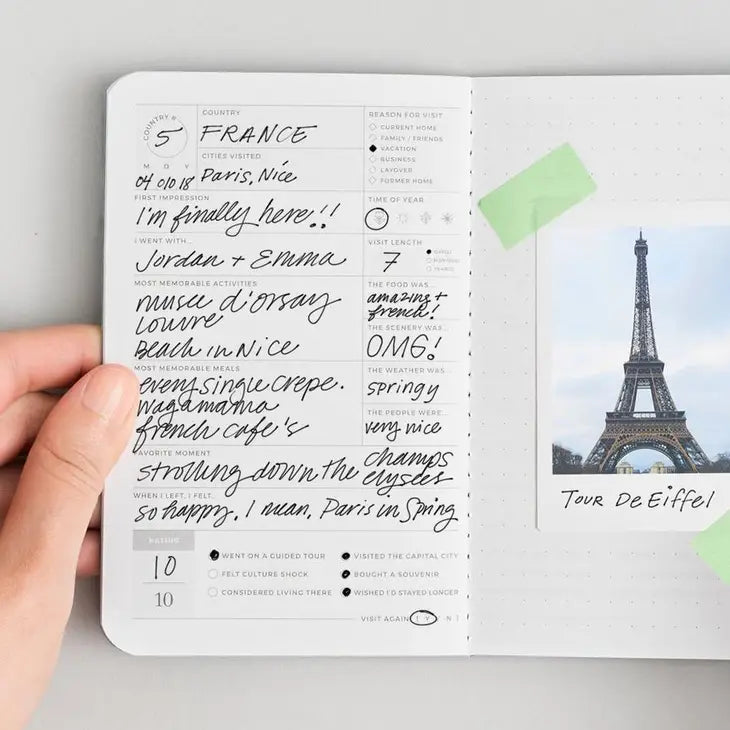 COUNTRY #
5
COUNTRY
FRANCE
REASON FOR VISIT
CURRENT HOME
FAMILY / FRIENDS
VACATION
BUSINESS
LAYOVER
FORMER HOME
CITIES VISITED
Paris, Nice
M D Y
04 010 18
FIRST IMPRESSION
I'm finally here!!
TIME OF YEAR
I WENT WITH...
Jordan + Emma
VISIT LENGTH
7
DAY(S)
MONTH(S)
YEAR(S)
MOST MEMORABLE ACTIVITIES
musée d'orsay
Louvre
Beach in Nice
THE FOOD WAS...
amazing +
french!
THE SCENERY WAS...
OMG!
MOST MEMORABLE MEALS
every single crepe.
wagamama
french cafe's
THE WEATHER WAS...
springy
THE PEOPLE WERE...
very nice
FAVORITE MOMENT
strolling down the champs
elysees
WHEN I LEFT, I FELT...
so happy. I mean, Paris in Spring
RATING
10
10
WENT ON A GUIDED TOUR
VISITED THE CAPITAL CITY
FELT CULTURE SHOCK
BOUGHT A SOUVENIR
CONSIDERED LIVING THERE
WISHED I'D STAYED LONGER
VISIT AGAIN [ Y / N ]
TOUR DE Eiffel